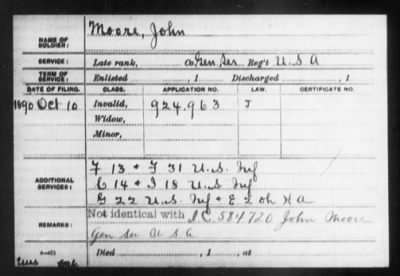 NAME OF SOLDIER: Moore, John
SERVICE: Late rank, Co. Gen Ser Reg't U.S.A
TERM OF SERVICE: Enlisted , 1 Discharged , 1
DATE OF FILING. CLASS. APPLICATION NO. LAW. CERTIFICATE NO.
1890 Oct 10 Invalid, 924,963 J
Widow,
Minor,
F 13 & F 31 U.S. Inf
ADDITIONAL SERVICES: E 14 & I 18 U.S. Inf
G 22 U.S. Inf & E 2 Oh H A
REMARKS: Not identical with I.C. 584720 John Moore
Gen Ser U S A
Died , 1 , at